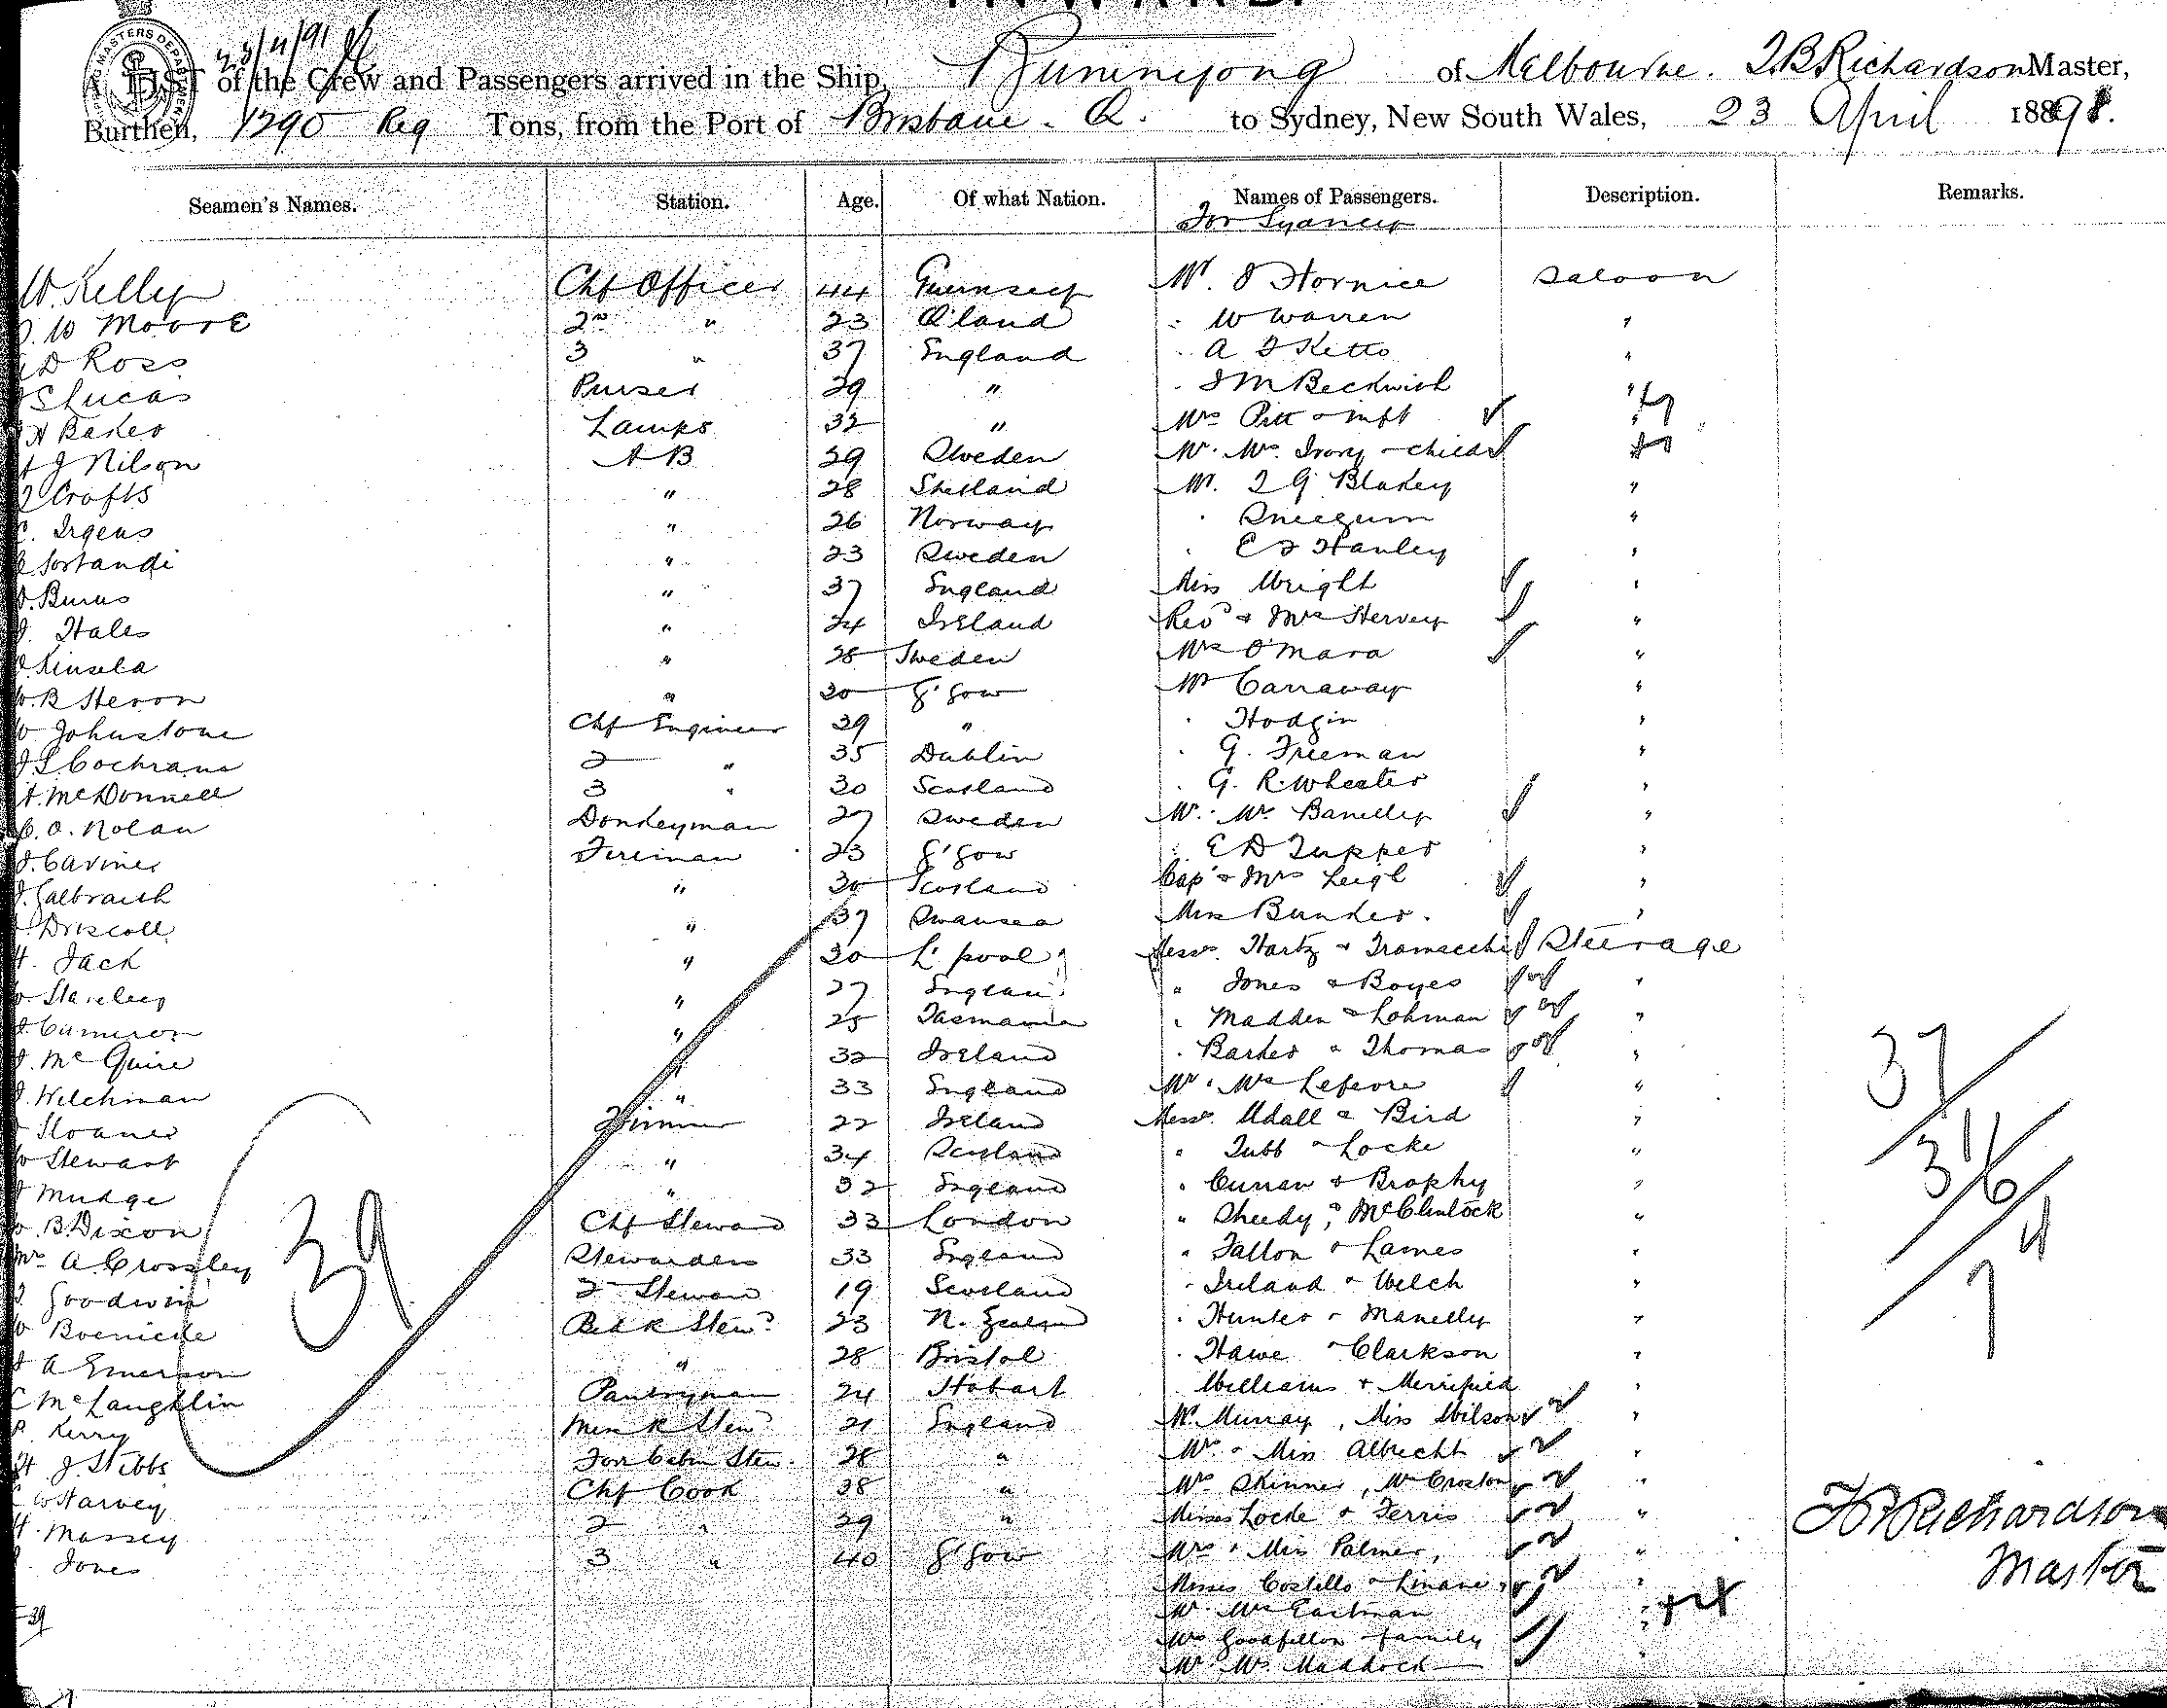 INWARD
MASTERS DEPARTMENT
23/4/91
A LIST of the Crew and Passengers arrived in the Ship, Buninyong of Melbourne. T.B Richardson Master,
Burthen, 1290 Reg Tons, from the Port of Brisbane. Q. to Sydney, New South Wales, 23 April 1891.
Seamen's Names. Station. Age. Of what Nation. Names of Passengers. Description. Remarks.
For Sydney
W. Kelly Chf Officer 44 Guernsey Mr. Hornice Saloon
W Moore 2nd " 23 Q'land " W Warren "
D Ross 3 " 37 England " A Ketto "
S Lucas Purser 29 " " M Beckwith "
H Baker Lamps 32 " Mrs Pitt & inft "
J Nilson A B 29 Sweden Mr. Mrs. Ivory & child "
Crofts " 28 Shetland Mr. G Blakey "
Irgens " 26 Norway " Sneezum "
Sortandi " 23 Sweden " E Hanley "
Burns " 37 England Miss Wright "
Hales " 24 Ireland Revd & Mrs Hervey "
Kinsela " 28 Sweden Mrs O'Mara "
B Heron " 20 G'gow Mr Carraway "
Johnstone Chf Engineer 39 " " Hodgin "
Cochrane 2 " 35 Dublin " G. Freeman "
McDonnell 3 " 30 Scotland " G. R. Wheeler "
O. Nolan Donkeyman 27 Sweden Mr. Mrs "
Fireman 23 G'gow " E D Tupper "
Galbraith " 30 Scotland Capt & Mrs Leigh "
Driscoll " 37 Swansea Miss Bunker. "
H. Jack " 30 L'pool Messrs. Hartz & Tramacchi Steerage
Staveley " 27 England " Jones & Boyes "
Cameron " 25 Tasmania " Madden & Lohman "
McGuire " 32 Ireland " Barker & Thomas "
Welchman " 33 England Mr & Mrs Lefevre "
Trimmer 22 Ireland Messrs. Udall & Bird "
Stewart " 34 Scotland " Tubb & Locke "
Mudge " 32 England " Curran & Brophy "
B. Dixon Chf Steward 33 London " Sheedy, & McClintock "
Mrs A. Crossley Stewardess 33 England " Fallon & Lames "
Goodwin 2 Steward 19 Scotland " Ireland & Welch "
Boenicke Bed R Stewd 23 N. Zealand " Hunter & Manelly "
A Emerson " 28 Bristol " Hawe & Clarkson "
McLaughlin Pantryman 24 Hobart Williams & Merrifield "
Kerry Mess R Stewd 21 England Mr. Murray, Miss Wilson "
J. Stibbs Fore Cabin Stew. 28 " Mrs & Miss Albrecht "
W Harvey Chf Cook 38 " Mrs Skinner, Mrs Croston "
H. Massey 2 " 29 " Misses Locke & Ferris "
Jones 3 " 40 G'gow Mrs & Miss Palmer, "
Misses Costello & Linane "
Mr. Mrs Eastman "
39 Mrs Goodfellow & family "
Mr Mrs Maddock "
39
37
31/6
4
7
T B Richardson
Master